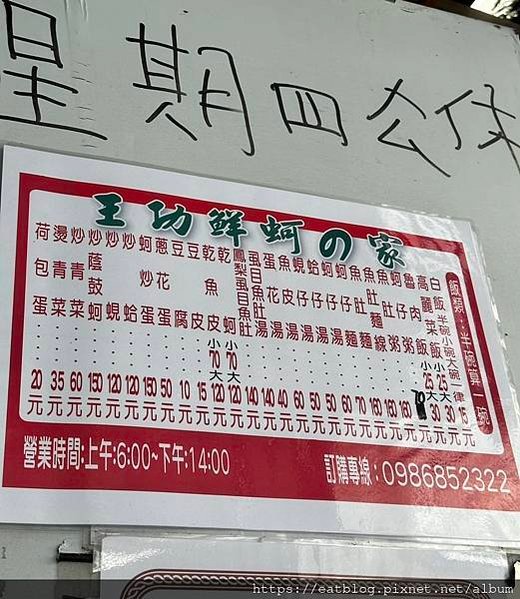 星期四公休
王功鮮蚵の家
飯類:半碗算一碗
白飯半碗小碗大碗一律15元
高麗菜飯:小25大30元
魯肉飯:小25大30元
蚵仔粥......70元
魚肚粥......160元
魚肚麵線......160元
魚肚麵......160元
蚵仔麵......70元
蚵仔湯......60元
蛤仔湯......50元
蜆仔湯......50元
魚皮湯......60元
蛋花湯......40元
虱目魚肚湯......140元
鳳梨虱目魚肚......140元
乾蚵:小70大120元
乾魚皮:小70大120元
豆皮......15元
豆腐......10元
蔥花蛋......50元
蚵炒蛋......150元
炒蛤......120元
炒蜆......120元
炒蔭鼓蚵......150元
炒青菜......60元
燙青菜......35元
荷包蛋......20元
營業時間:上午:6:00~下午:14:00
訂購專線:0986852322
https://eatblog.pixnet.net/album